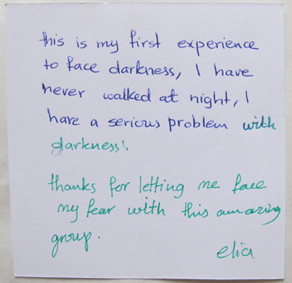 this is my first experience
to face darkness, I have
never walked at night, I
have a serious problem with
darkness!.
thanks for letting me face
my fear with this amazing
group.
elia